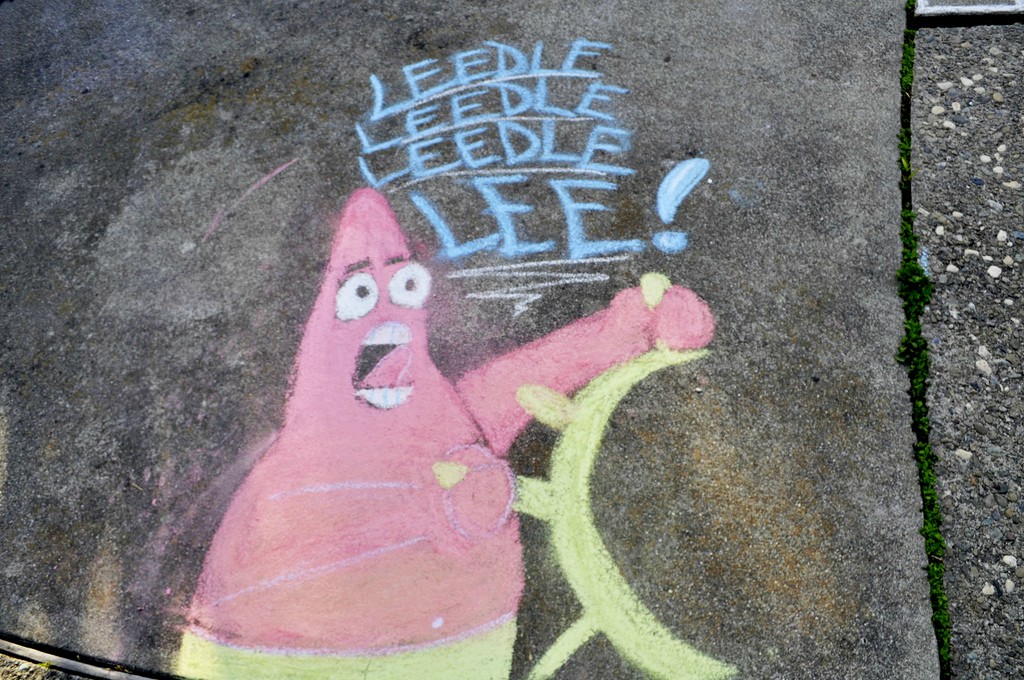 LEEDLE
LEEDLE
LEEDLE
LEE!